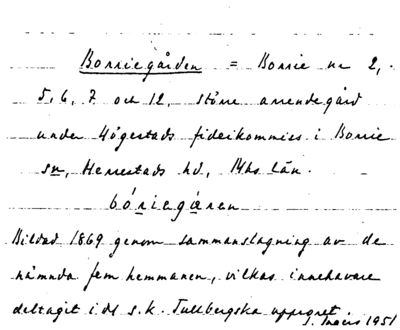 Borriegården = Borrie nr 2,
5, 6, 7 och 12, större arrendegård
under Högestads fideikommiss i Borrie
sn, Herrestads hd, Mhs län.
bóriegạ̊ren
Bildad 1869 genom sammanslagning av de
nämnda fem hemmanen, vilkas innehavare
deltagit i det s.k. Tullbergska upproret
1951